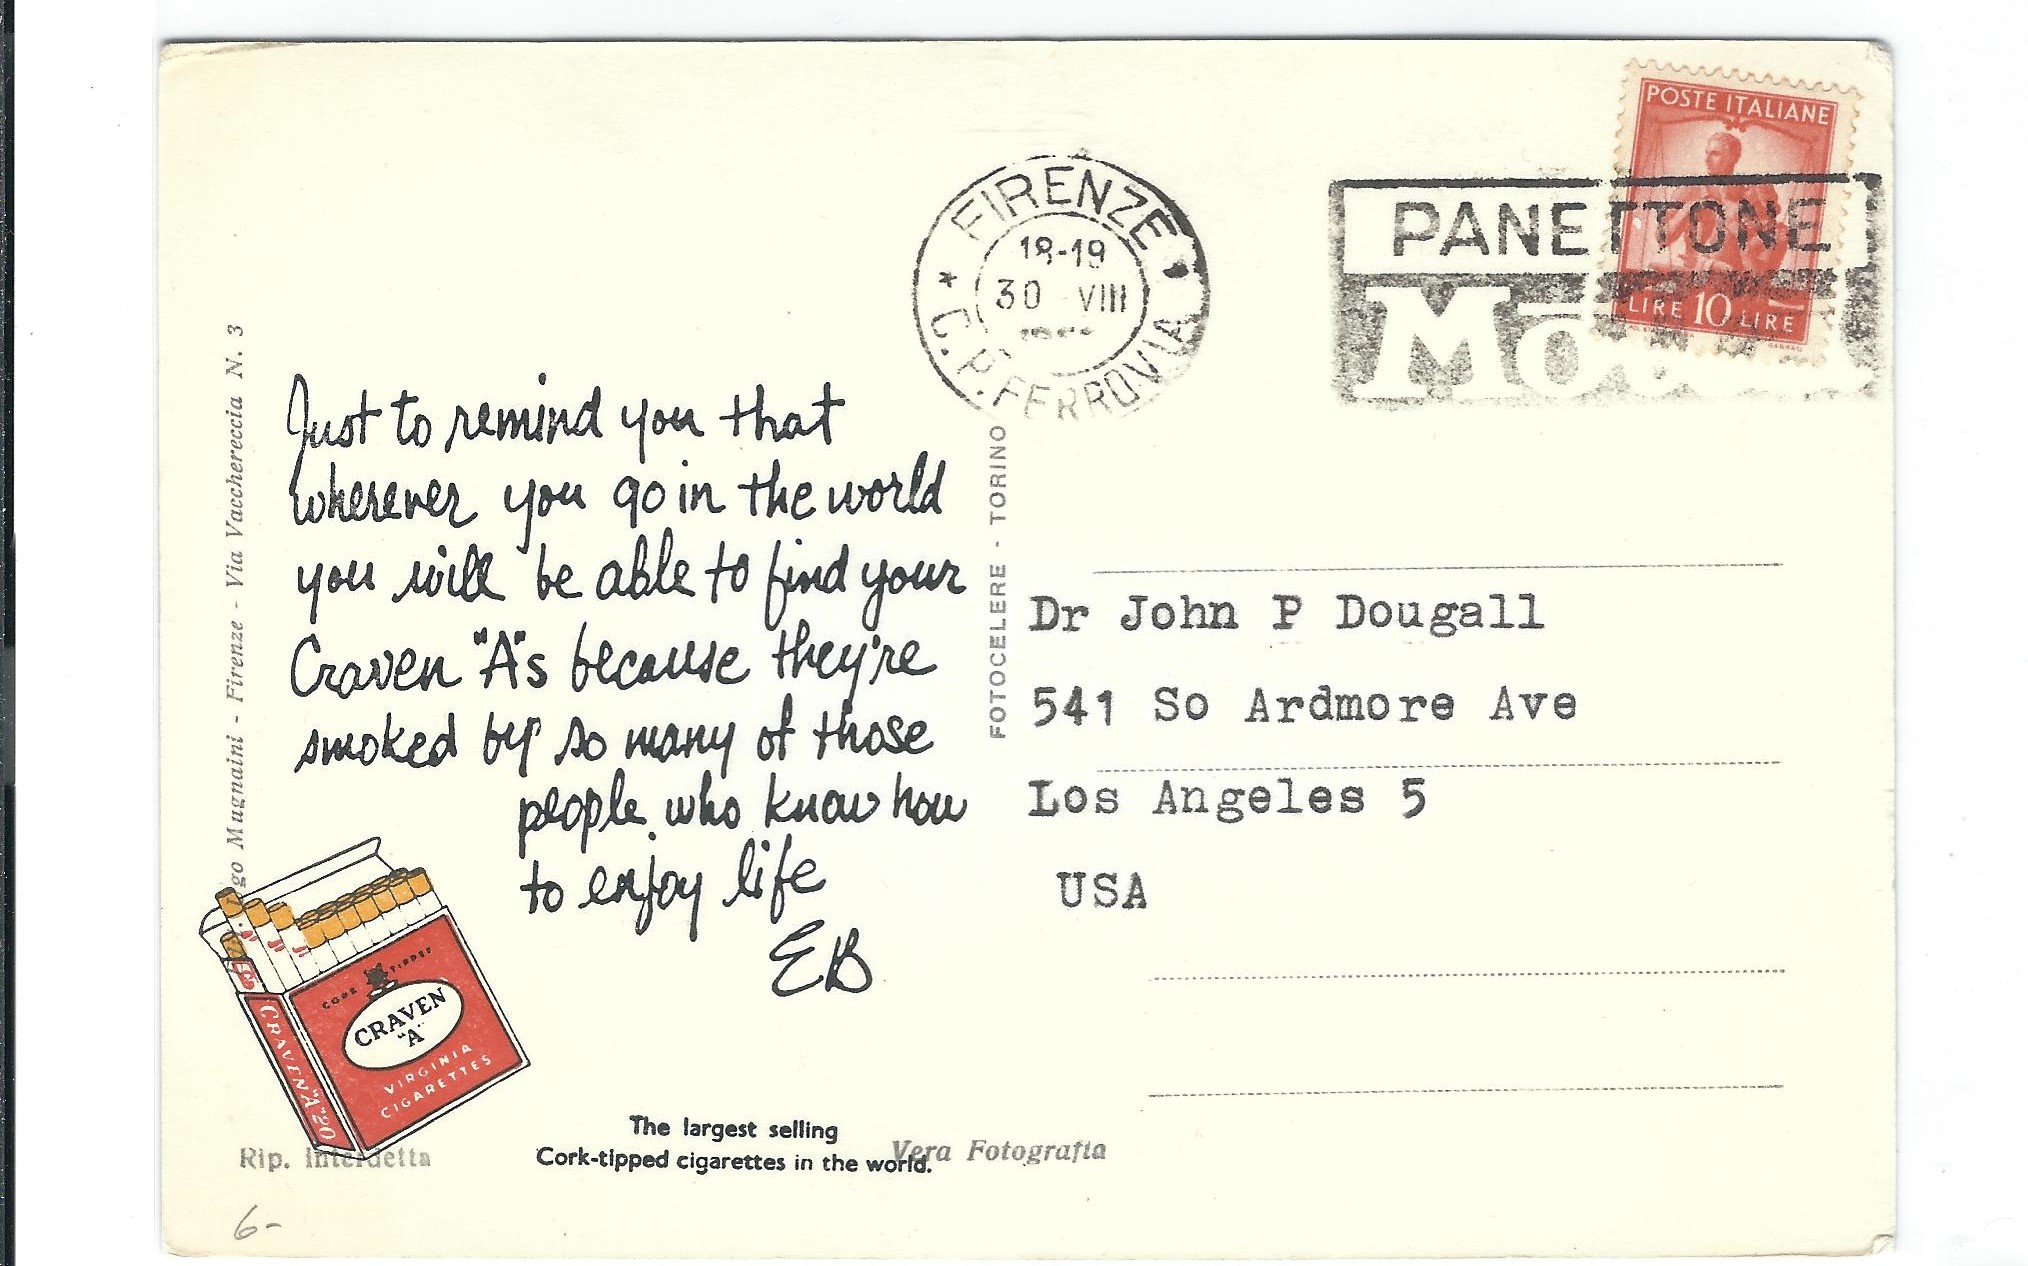 POSTE ITALIANE
LIRE 10 LIRE
FIRENZE
18-19
30 VIII
C.P. FERROVIA
PANETTONE
Just to remind you that
wherever you go in the world
you will be able to find your
Craven "A"s because they're
smoked by so many of those
people who know how
to enjoy life
EB
Dr John P Dougall
541 So Ardmore Ave
Los Angeles 5
USA
FOTOCELERE - TORINO
Mugnaini - Firenze - Via Vacchereccia N. 3
CORK TIPPED
CRAVEN
"A"
VIRGINIA
CIGARETTES
CRAVEN "A" 20
The largest selling
Cork-tipped cigarettes in the world.
Rip. Interdetta
Vera Fotografia
6-